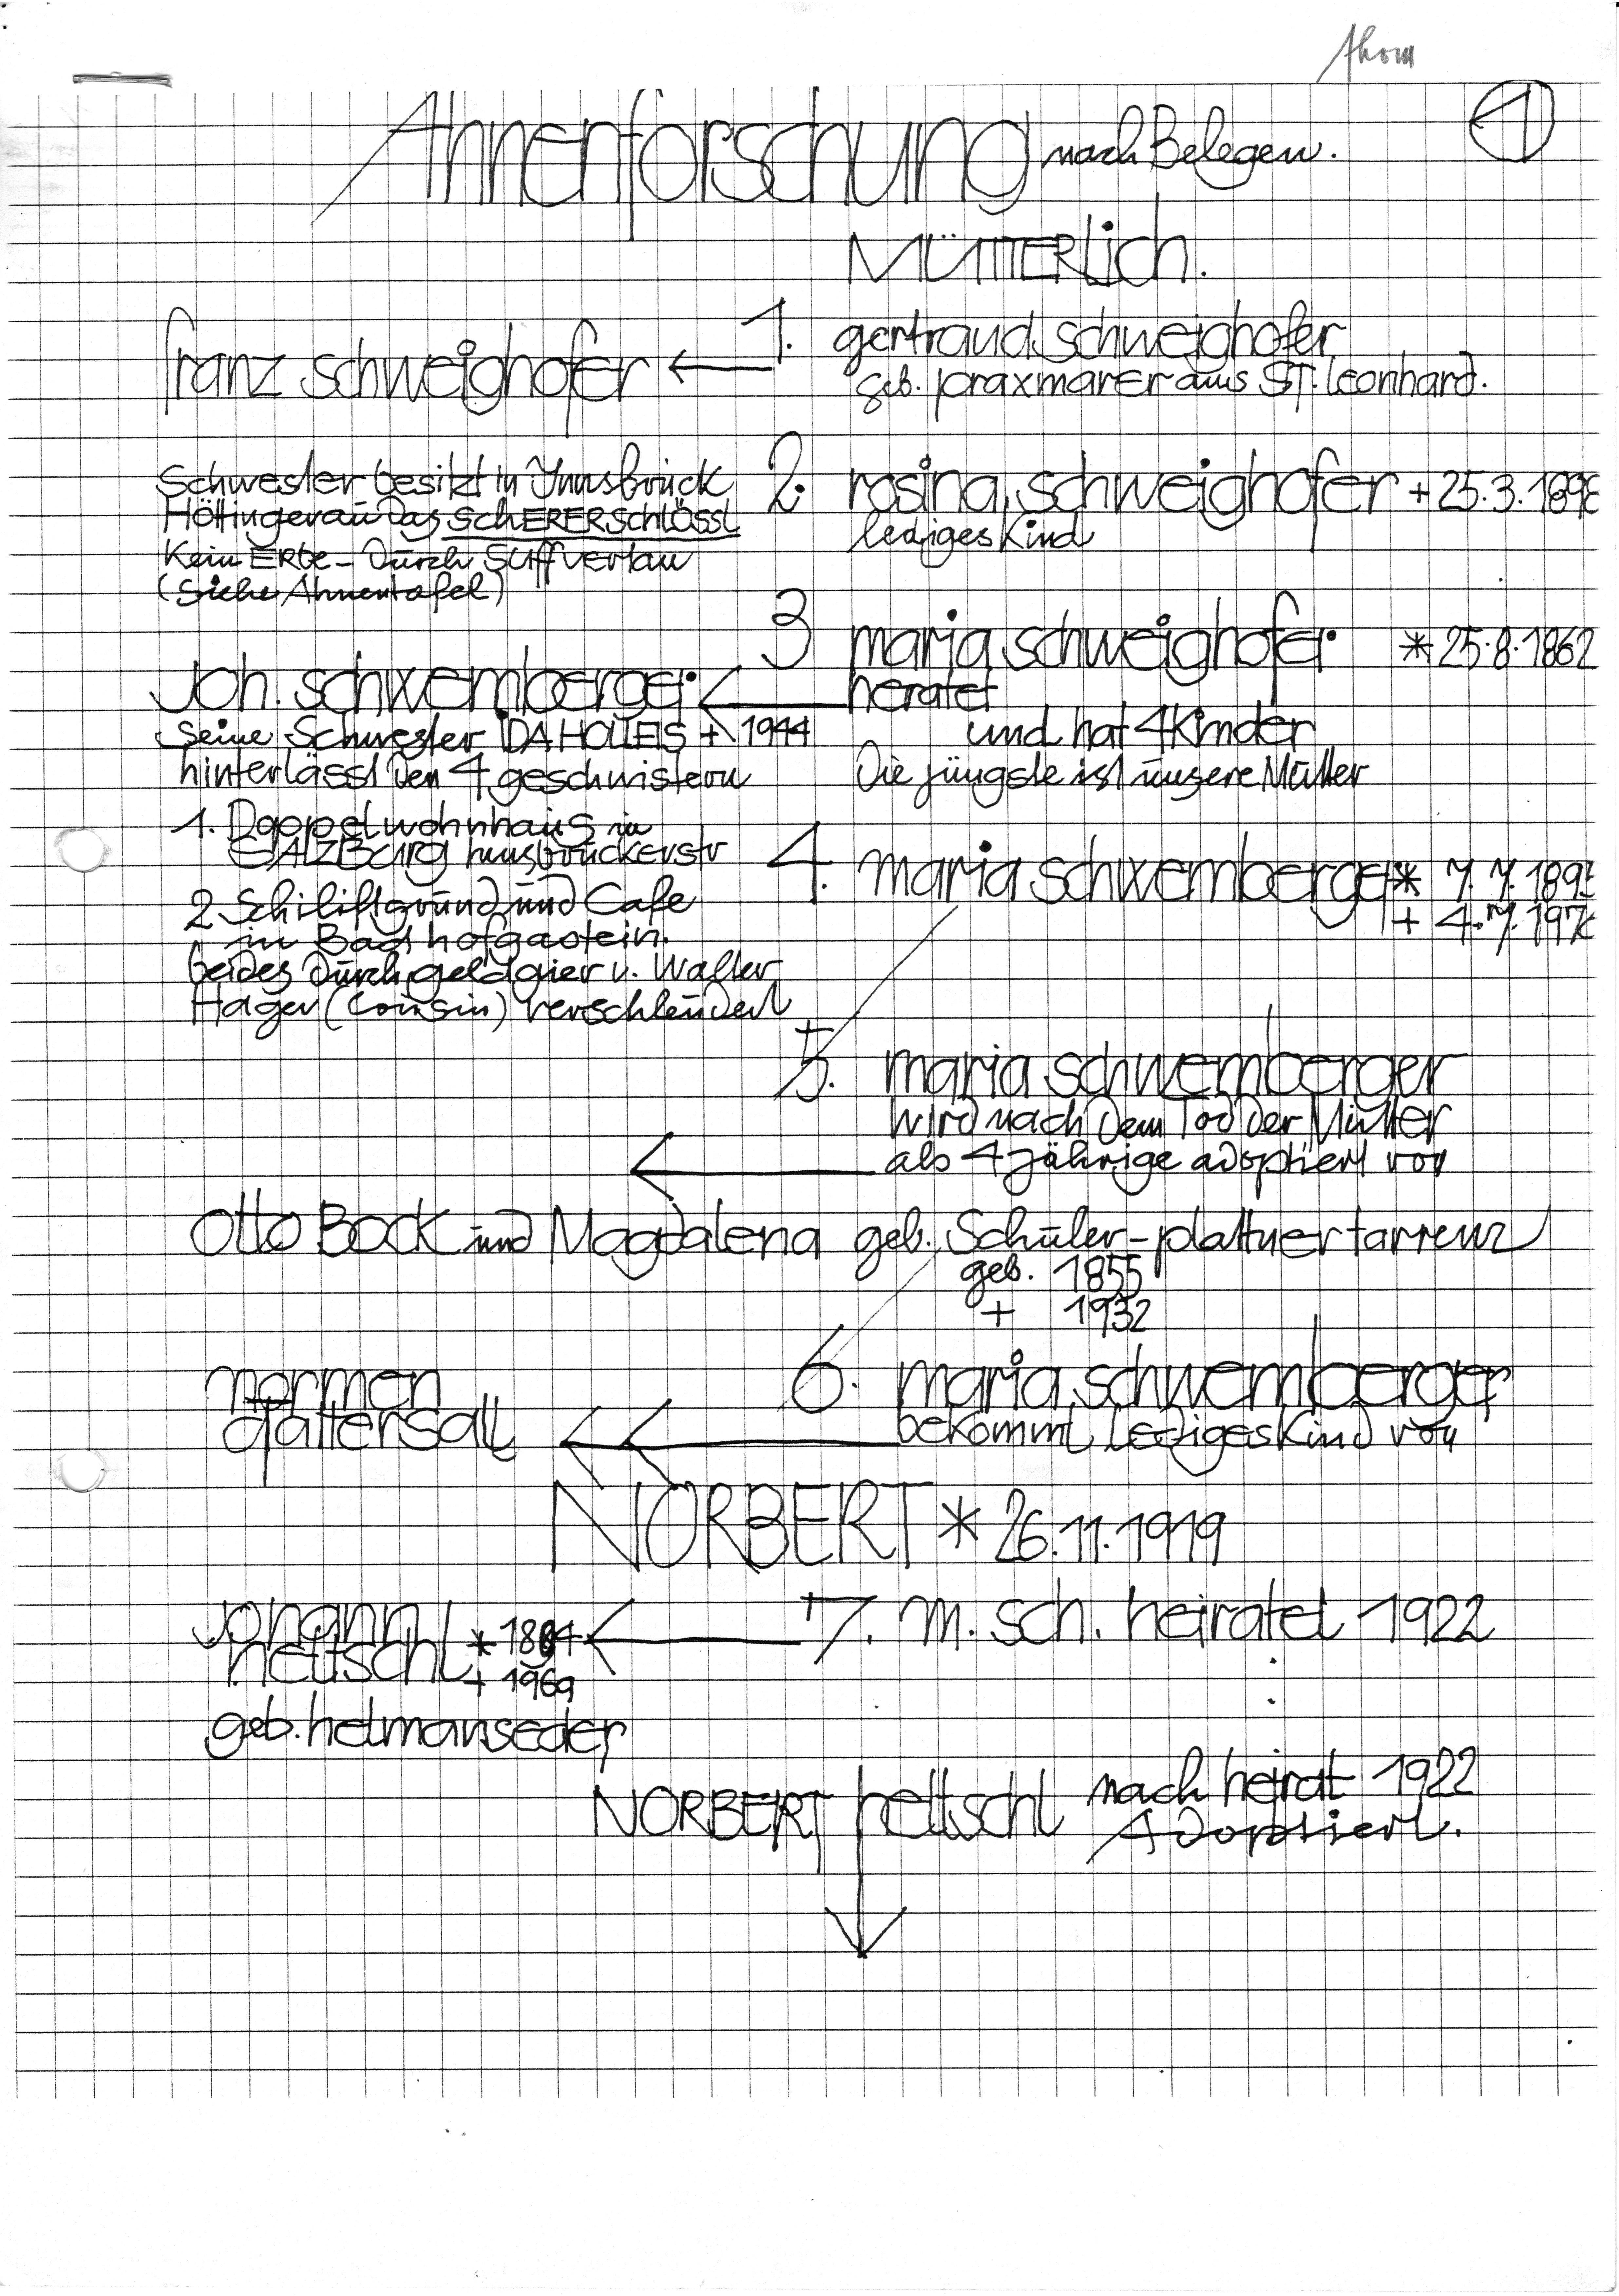 Thom
1
Ahnenforschung nach Belegen.
MÜTTERlich.
franz schweighofer ← 1. gertraud schweighofer
geb. praxmarer aus ST. leonhard.
2. rosina schweighofer + 25.3.189
lediges Kind
Schwester besitzt in Innsbruck
Höttingerau das SCHERERSCHLÖSSL
Kein ERbe – Durch SUff vertan
(Siehe Ahnentafel)
3 maria schweighofer * 25.8.1862
heratet
und hat 4 Kinder
Die jüngste ist unsere Mutter
Joh. schwemberger
seine Schwester IDA HOLLEIS + 1944
hinterlässt den 4 geschwistern
1. Doppelwohnhaus in
SALZBURG Innsbruckerstr
2 Schiliftgrund und Cafe
in Bad hofgastein.
beides durch geldgier v. Walter
Hager (Cousin) verschleudert
4. maria schwemberger * 7.7.189
+ 4.7.197
5. maria schwemberger
wird nach dem Tod der Mutter
als 4 jährige adoptiert von
Otto Bock und Magdalena geb. Schuler-plattner tarrenz
geb. 1855
+ 1932
6. maria schwemberger
bekommt lediges Kind von
normen
tattersall
NORBERT * 26.11.1919
7. m. sch. heiratet 1922
Johann
heltschl * 1894
+ 1969
geb. helmanseder
NORBERT heltschl nach heirat 1922
Adoptiert.